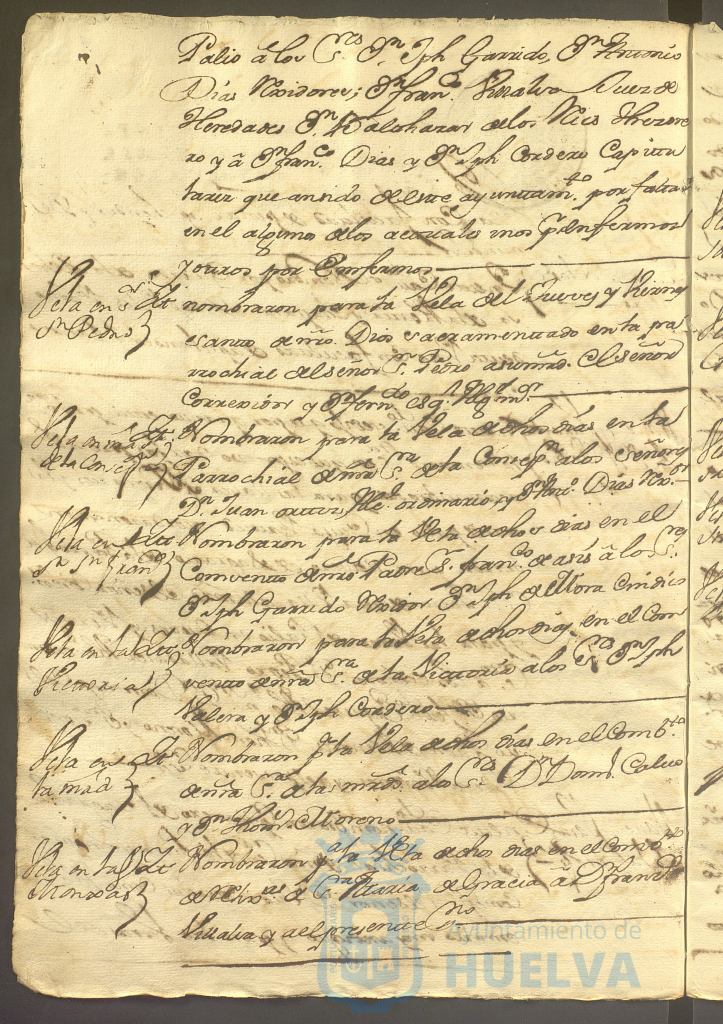 Palio â los S.res D.n Jph Garrido, D.n Antonio
Dias Rexidores; D.n Fran.co Villalva Juez de
Heredades D.n Balthazar de los Rios Threzore
ro y â D.n Fran.co Dias y D.n Jph Cordero Capitu
lares que an sido de este ayuntam.to por faltar
en el algunos de los actuales unos p.r Enfermos
y otros por Enfermos
Vela en S.r
S.n Pedro
It nombraron para la Vela del Jueves y Viernes
santo de nro. Dios sacramentado en la pa
rrochial del señor S.n Pedro a su md. el señor
Correxidor y D.n Fern.do
Vela en nra. S.ra
de la Conc.on
It. Nombraron para la Vela de dhos dias en la
Parrochial de nra S.ra de la Concep.on a los señores
D.n Juan ordinario, y D.n Ant.o Dias Rex.or
Vela en
S.n Fran.co
Itt Nombraron para la Vela de dhos dias en el
Convento de nro Padre S.n Fran.co de asis â los S.res
D.n Jph Garrido Rexidor D.n Jph de Mora Sindico
Vela en la
Victoria
Itt. Nombraron para la Vela de dhos dias, en el Com
vento de nra S.ra de la Victoria a los S.res D.n Jph
Valera y D.n Jph Cordero
Vela en
la mrd
It Nombraron p.a la Vela de dhos dias en el Comb.to
de nra S.ra de las mrds. a los S.res D.n Dom.o Calvo
y D.n Thom.s Moreno
Vela en las
Monxas
It Nombraron p.a la Vela de dhos dias en el Comv.to
de Relix.as de S.ta Maria de Gracia â D.n Fran.co
Villalva y a el presente ss.no
Ayuntamiento de
HUELVA